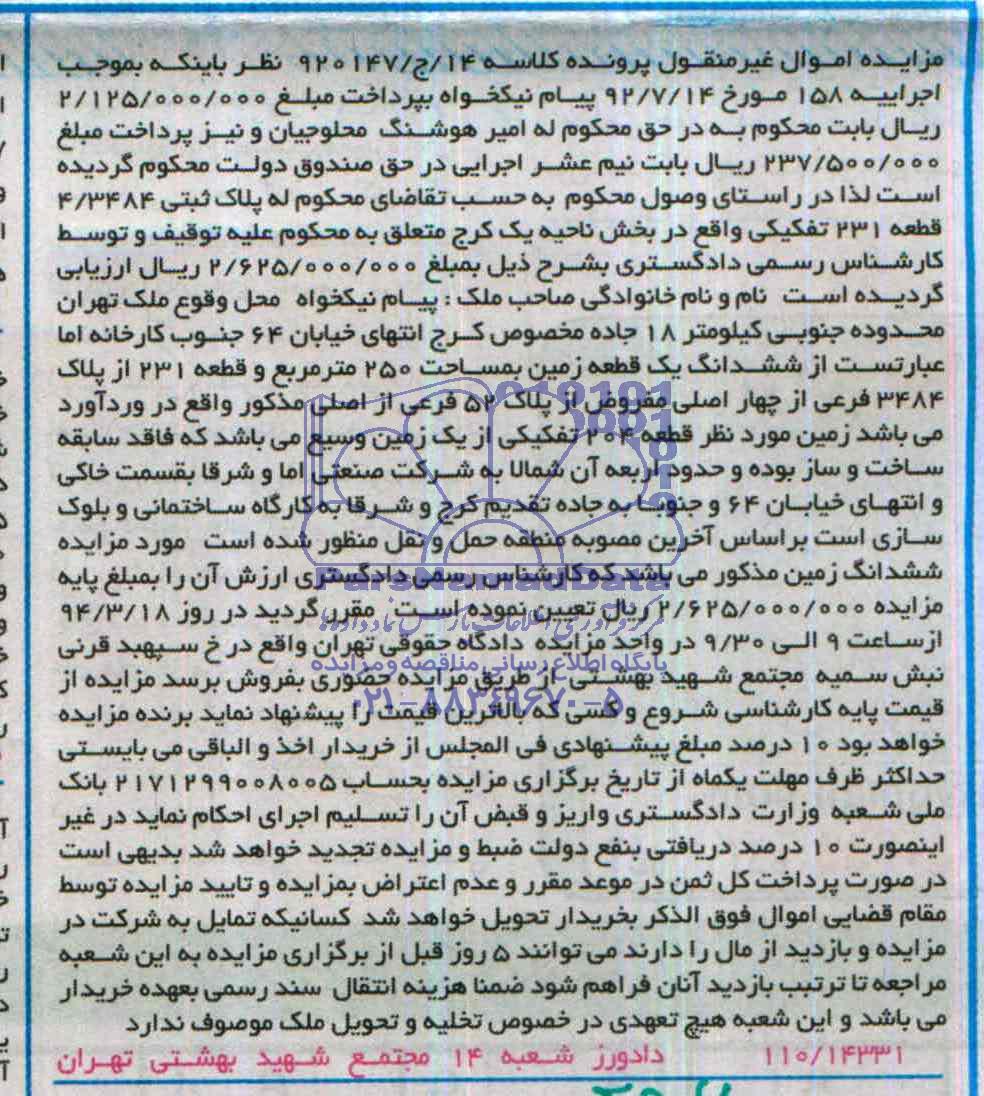 مزایده اموال غیرمنقول پرونده کلاسه ۱۴/ج/۹۲۰۱۴۷ نظر باینکه بموجب
اجراییه ۱۵۸ مورخ ۹۲/۷/۱۴ پیام نیکخواه بپرداخت مبلغ ۲/۱۲۵/۰۰۰/۰۰۰
ریال بابت محکوم به در حق محکوم له امیر هوشنگ محلوجیان و نیز پرداخت مبلغ
۲۳۷/۵۰۰/۰۰۰ ریال بابت نیم عشر اجرایی در حق صندوق دولت محکوم گردیده
است لذا در راستای وصول محکوم به حسب تقاضای محکوم له پلاک ثبتی ۴/۳۴۸۴
قطعه ۲۳۱ تفکیکی واقع در بخش ناحیه یک کرج متعلق به محکوم علیه توقیف و توسط
کارشناس رسمی دادگستری بشرح ذیل بمبلغ ۲/۶۲۵/۰۰۰/۰۰۰ ریال ارزیابی
گردیده است نام و نام خانوادگی صاحب ملک : پیام نیکخواه محل وقوع ملک تهران
محدوده جنوبی کیلومتر ۱۸ جاده مخصوص کرج انتهای خیابان ۶۴ جنوب کارخانه اما
عبارتست از ششدانگ یک قطعه زمین بمساحت ۲۵۰ مترمربع و قطعه ۲۳۱ از پلاک
۳۴۸۴ فرعی از چهار اصلی مفروض از پلاک ۵۲ فرعی از اصلی مذکور واقع در وردآورد
می باشد زمین مورد نظر قطعه ۲۰۴ تفکیکی از یک زمین وسیع می باشد که فاقد سابقه
ساخت و ساز بوده و حدود اربعه آن شمالا به شرکت صنعتی اما و شرقا بقسمت خاکی
و انتهای خیابان ۶۴ و جنوبا به جاده تقدیم کرج و شرقا به کارگاه ساختمانی و بلوک
سازی است براساس آخرین مصوبه منطقه حمل و نقل منظور شده است مورد مزایده
ششدانگ زمین مذکور می باشد که کارشناس رسمی دادگستری ارزش آن را بمبلغ پایه
مزایده ۲/۶۲۵/۰۰۰/۰۰۰ ریال تعیین نموده است . مقرر گردید در روز ۹۴/۳/۱۸
ازساعت ۹ الی ۹/۳۰ در واحد مزایده دادگاه حقوقی تهران واقع در خ سپهبد قرنی
نبش سمیه مجتمع شهید بهشتی از طریق مزایده حضوری بفروش برسد مزایده از
قیمت پایه کارشناسی شروع و کسی که بالاترین قیمت را پیشنهاد نماید برنده مزایده
خواهد بود ۱۰ درصد مبلغ پیشنهادی فی المجلس از خریدار اخذ و الباقی می بایستی
حداکثر ظرف مهلت یکماه از تاریخ برگزاری مزایده بحساب ۲۱۷۱۲۹۹۰۰۸۰۰۵ بانک
ملی شعبه وزارت دادگستری واریز و قبض آن را تسلیم اجرای احکام نماید در غیر
اینصورت ۱۰ درصد دریافتی بنفع دولت ضبط و مزایده تجدید خواهد شد بدیهی است
در صورت پرداخت کل ثمن در موعد مقرر و عدم اعتراض بمزایده و تایید مزایده توسط
مقام قضایی اموال فوق الذکر بخریدار تحویل خواهد شد کسانیکه تمایل به شرکت در
مزایده و بازدید از مال را دارند می توانند ۵ روز قبل از برگزاری مزایده به این شعبه
مراجعه تا ترتیب بازدید آنان فراهم شود ضمنا هزینه انتقال سند رسمی بعهده خریدار
می باشد و این شعبه هیچ تعهدی در خصوص تخلیه و تحویل ملک موصوف ندارد
۱۱۰/۱۴۳۳۱ دادورز شعبه ۱۴ مجتمع شهید بهشتی تهران
ParsNamadData
پایگاه اطلاع رسانی مناقصه و مزایده
۰۲۱-۸۸۳۴۹۶۷۰-۵